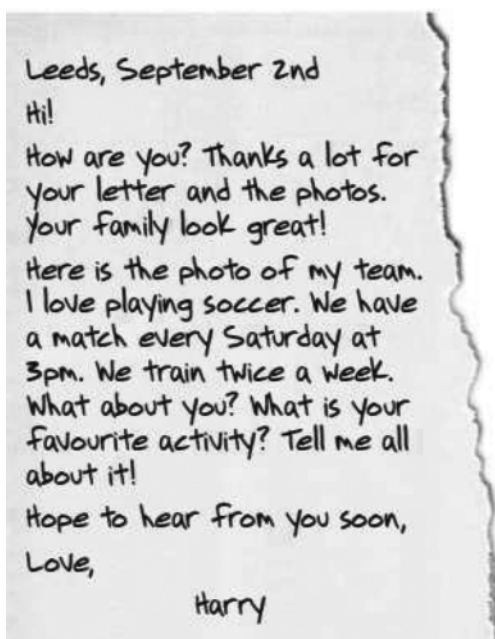 Leeds, September 2nd
Hi!
How are you? Thanks a lot for
your letter and the photos.
Your family look great!
Here is the photo of my team.
I love playing soccer. We have
a match every Saturday at
3pm. We train twice a week.
What about you? What is your
favourite activity? Tell me all
about it!
Hope to hear from you soon,
Love,
Harry